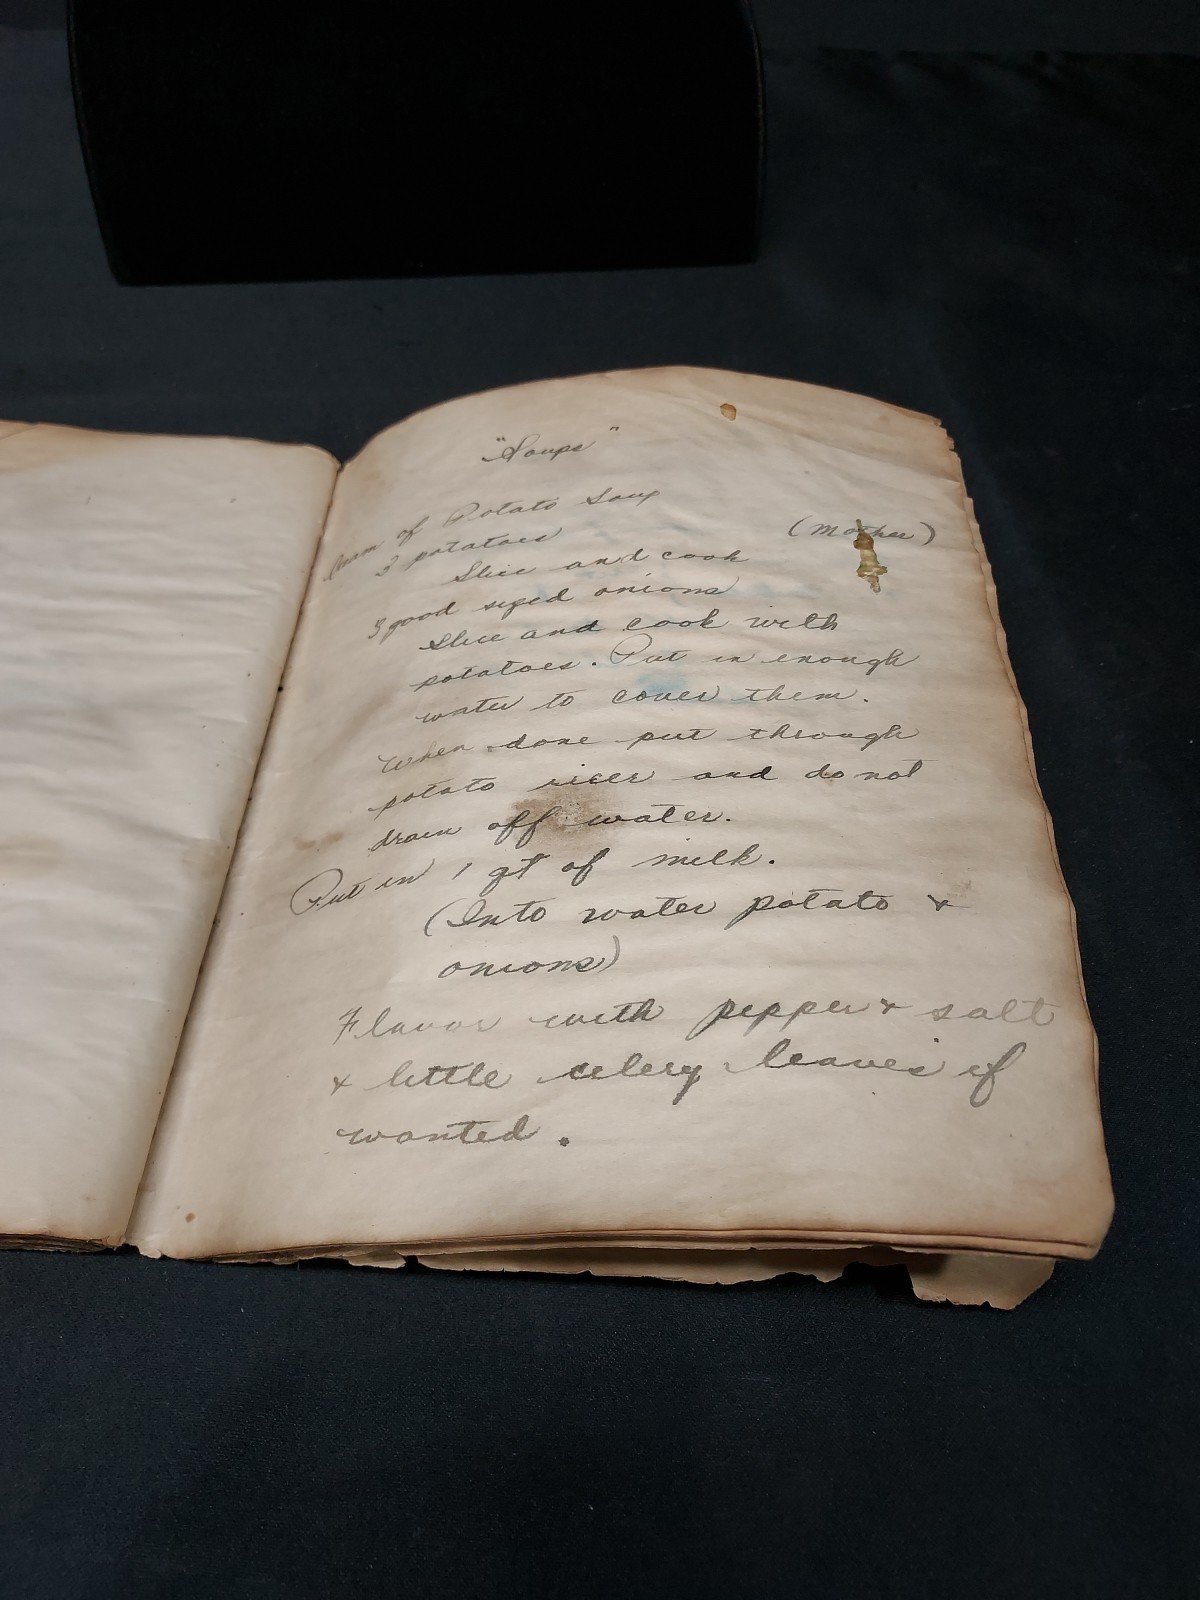 "Soups"
Cream of Potato Soup
(Mother)
3 potatoes
Slice and cook
3 good sized onions
Slice and cook with
potatoes. Put in enough
water to cover them.
When done put through
potato ricer and do not
drain off water.
Put in 1 qt of milk.
(Into water potato &
onions)
Flavor with pepper & salt
& little celery leaves if
wanted.